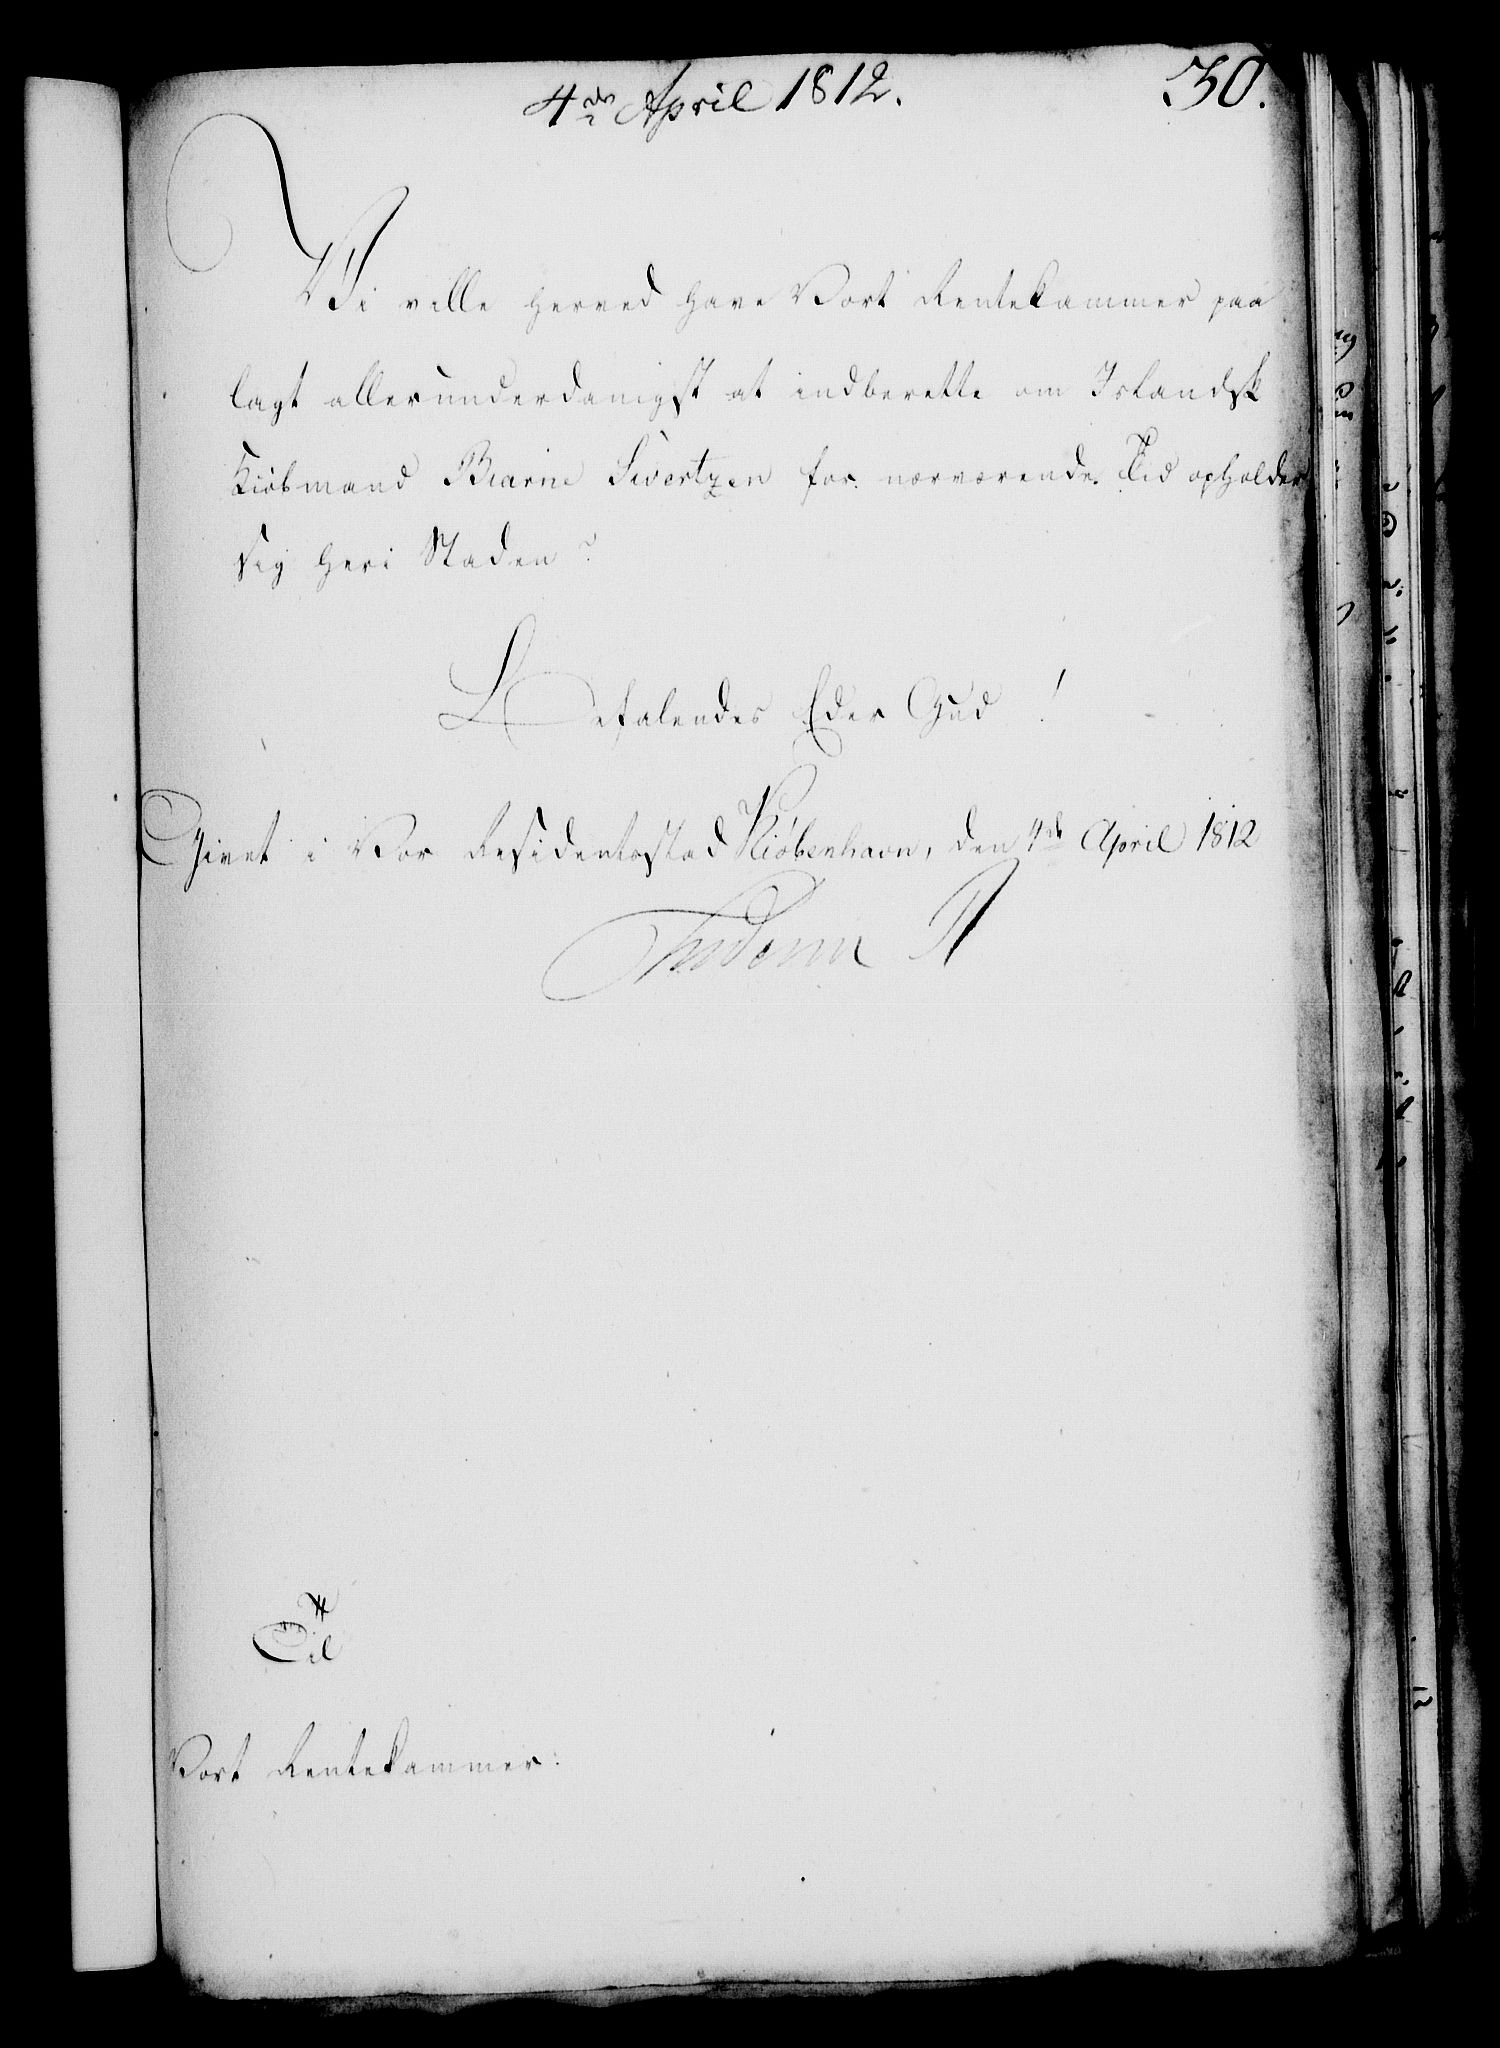 4de April 1812.
30.
Vi ville herved have Vort Rentekammer paa
lagt allerunderdanigst at indberette om Islandsk
Kiöbmand Biarne Sivertzen for nærværende Tid opholder
sig heri Staden?
Befalendes Eder Gud!
Givet i Vor Residentsstad Kiöbenhavn, den 4de April 1812
Frederik R
Til
Vort Rentekammer.